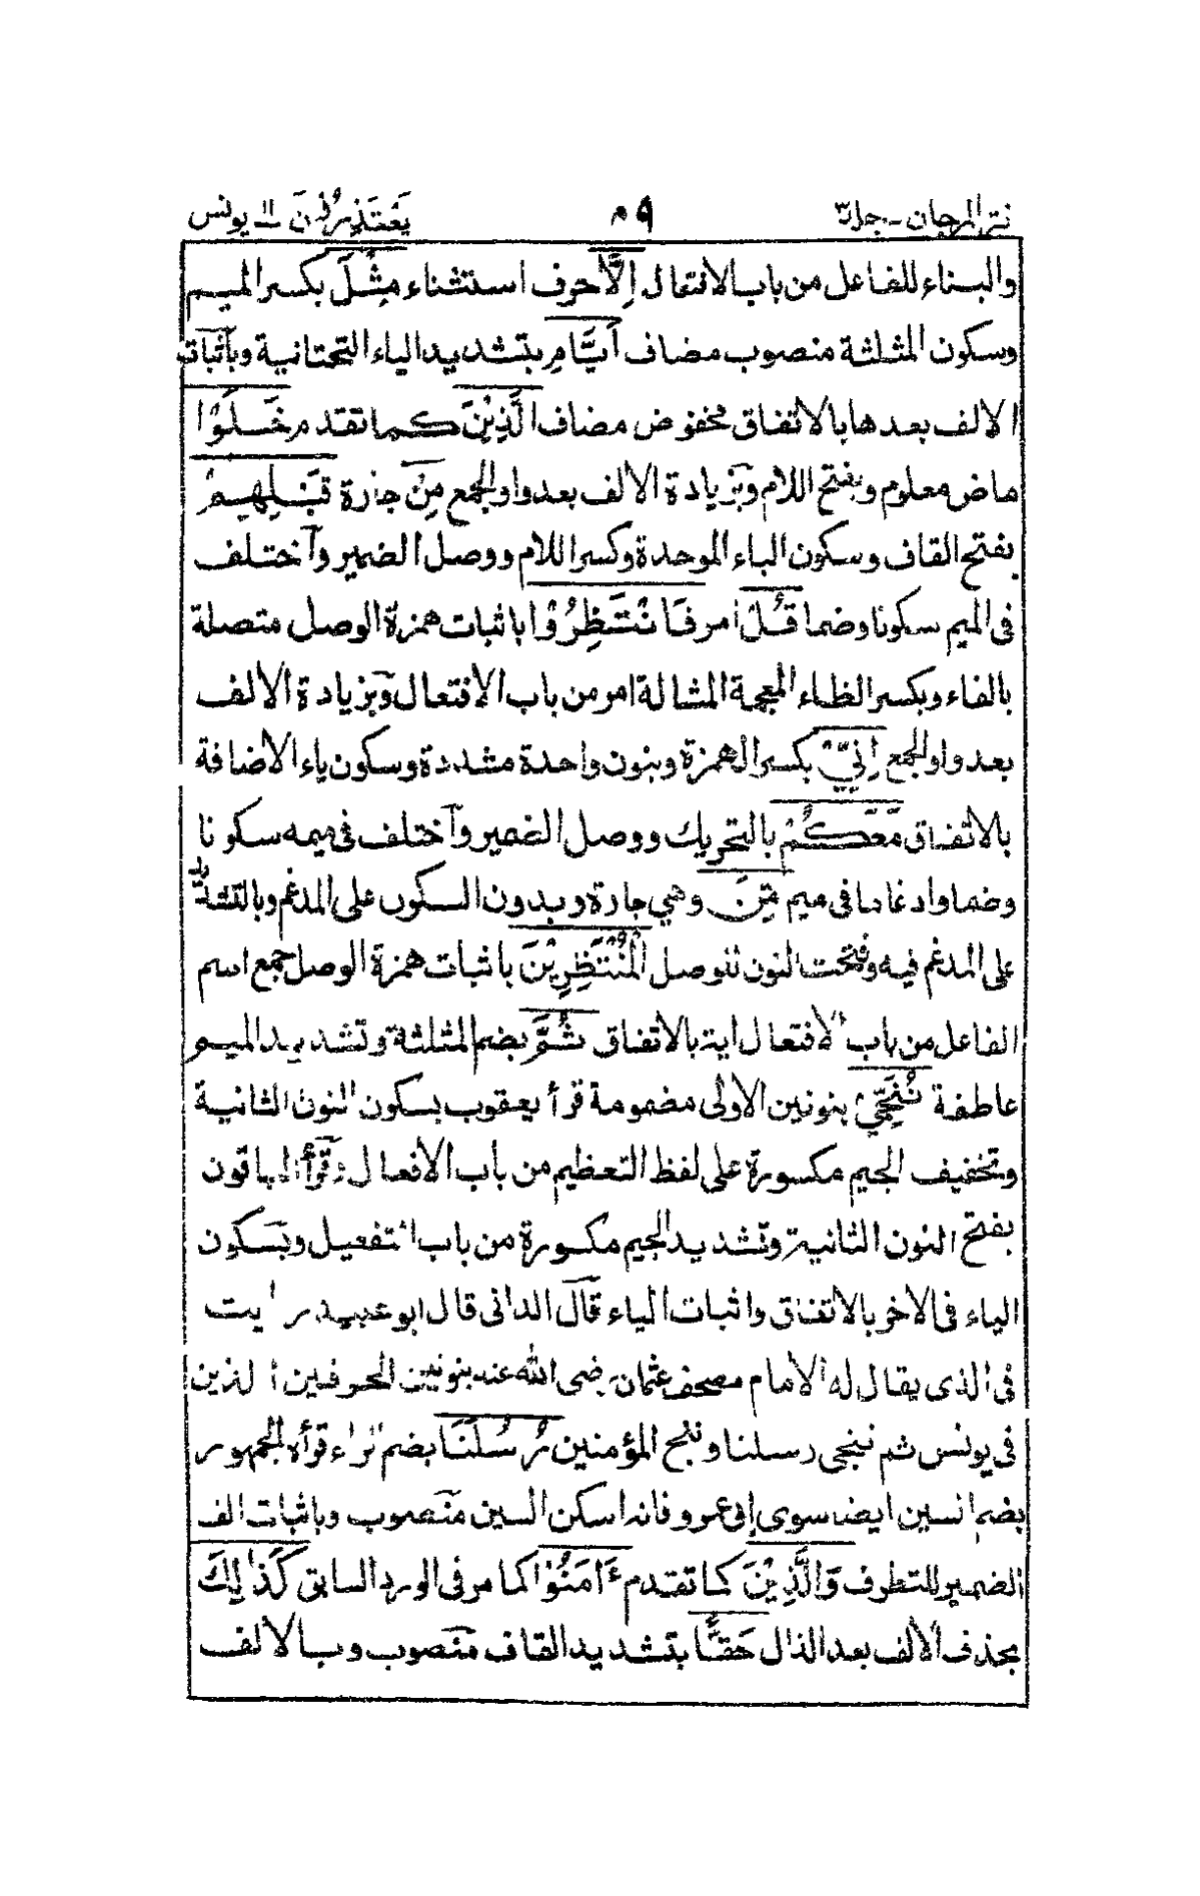 نثر المرجان - جلد ٣ ٩م يَعْتَذِرُوْنَ ١١ يونس
والبناء للفاعل من باب الافتعال اِلَّا حرف استثناء مِثْلَ بكسر الميم
وسكون المثلثة منصوب مضاف اَيَّامِ بتشديد الياء التحتانية وبآثبات
الالف بعدها بالاتفاق مخفوض مضاف الَّذِيْنَ كما تقدم خَلَوْا
ماض معلوم وبفتح اللام وبزيادة الالف بعد واو الجمع مِنْ جارة قَبْلِهِمْ
بفتح القاف وسكون الباء الموحدة وكسر اللام ووصل الضمير وآختلف
فى الميم سكونا وضما قُلْ امر فَانْتَظِرُوْا باثبات همزة الوصل متصلة
بالفاء وبكسر الظاء المعجمة المشالة امر من باب الافتعال وبزيادة الالف
بعد واو الجمع اِنِّيْ بكسر الهمزة وبنون واحدة مشددة وسكون ياء الاضافة
بالاتفاق مَعَكُمْ بالتحريك ووصل الضمير وآختلف فى ميمه سكونا
وضما وادغاما فى ميم مِّنَ وهي جارة وبدون السكون على المدغم وبالتشديد
على المدغم فيه وفتحت النون للوصل الْمُنْتَظِرِيْنَ باثبات همزة الوصل جمع اسم
الفاعل من باب الافتعال اية بالاتفاق ثُمَّ بضم المثلثة وتشديد الميم
عاطفة نُنَجِّيْ بنونين الاولى مضمومة قرأ يعقوب بسكون النون الثانية
وتخفيف الجيم مكسورة على لفظ التعظيم من باب الافعال وقرأ الباقون
بفتح النون الثانية وتشديد الجيم مكسورة من باب التفعيل وبسكون
الياء فى الاخر بالاتفاق واثبات الياء قَالَ الدانى قال ابو عبيد رايت
فى الذى يقال له الامام مصحف عثمان رضى الله عنه بنونين الحرفين الذين
فى يونس ثم ننجى رسلنا وننج المؤمنين رُسُلَنَا بضم الراء قرأه الجمهور
بضم السين ايضا سوى ابى عمرو فانه اسكن السين منصوب وباثبات الف
الضمير للتطرف وَالَّذِيْنَ كما تقدم ءَامَنُوْا كما مر فى الورد السابق كَذٰلِكَ
بحذف الالف بعد الذال حَقًّا بتشديد القاف منصوب وبالالف